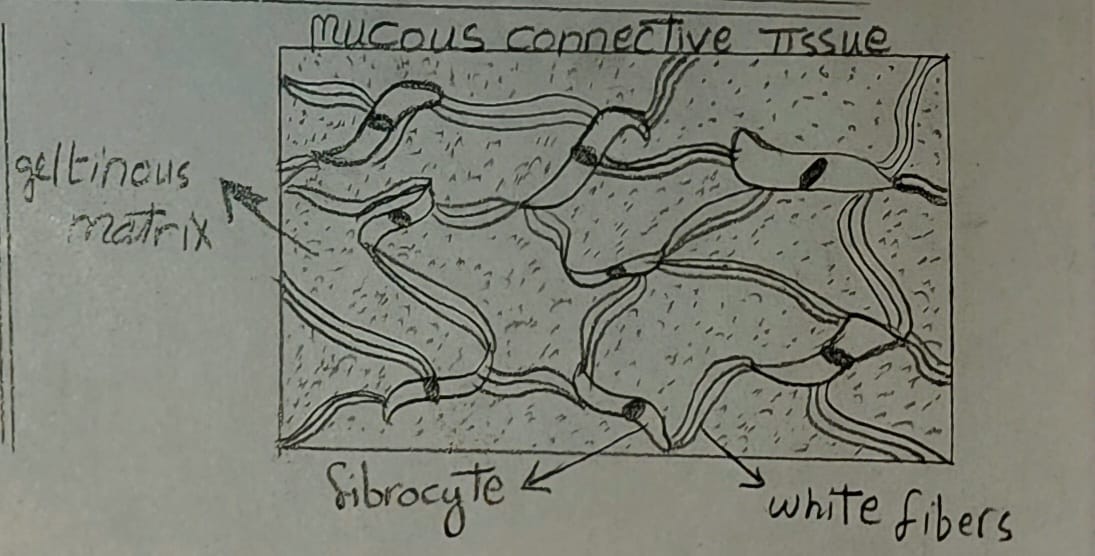 mucous connective Tissue
geltinous
matrix
fibrocyte
white fibers